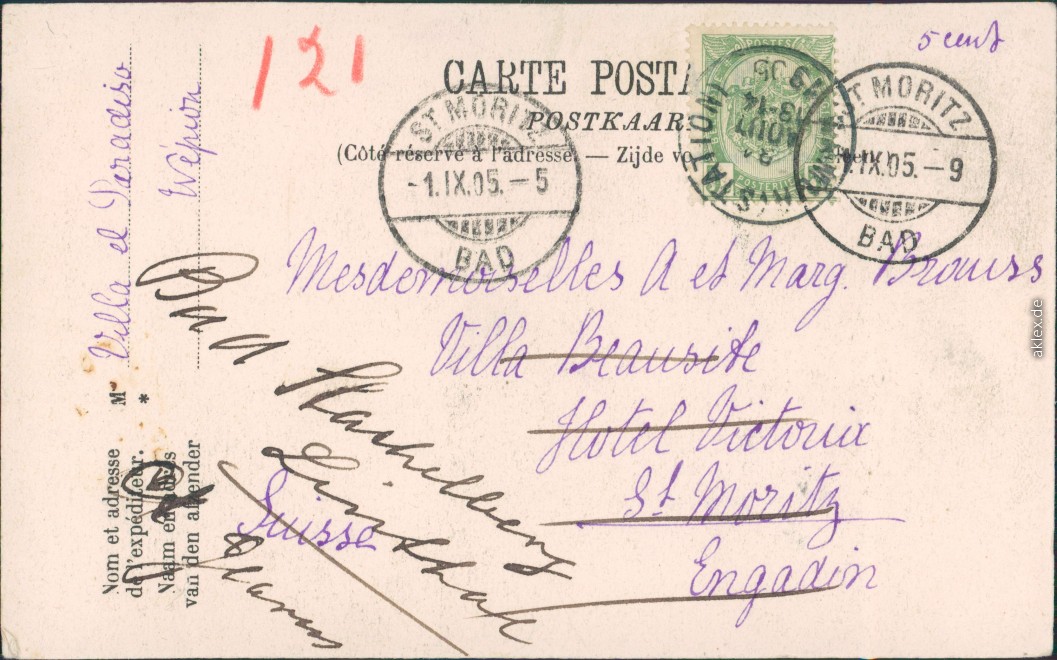 121
5 cent
CARTE POSTA
POSTKAAR
(Côté réservé à l'adresse. — Zijde vo
ST MORITZ
-1.IX.05.-5
BAD
ST MORITZ
1.IX.05.-9
BAD
POSTES
(STATION)
Mesdemoiselles A et Marg. Brauss
Villa Beausite
Hotel Victoria
St. Moritz
Engadin
Suisse
Bad Stachelberg
Linthal
Glarus
Villa el Paradiso
Wépion
M
*
Nom et adresse
de l'expéditeur.
Naam en adres
van den afzender
aklex.de